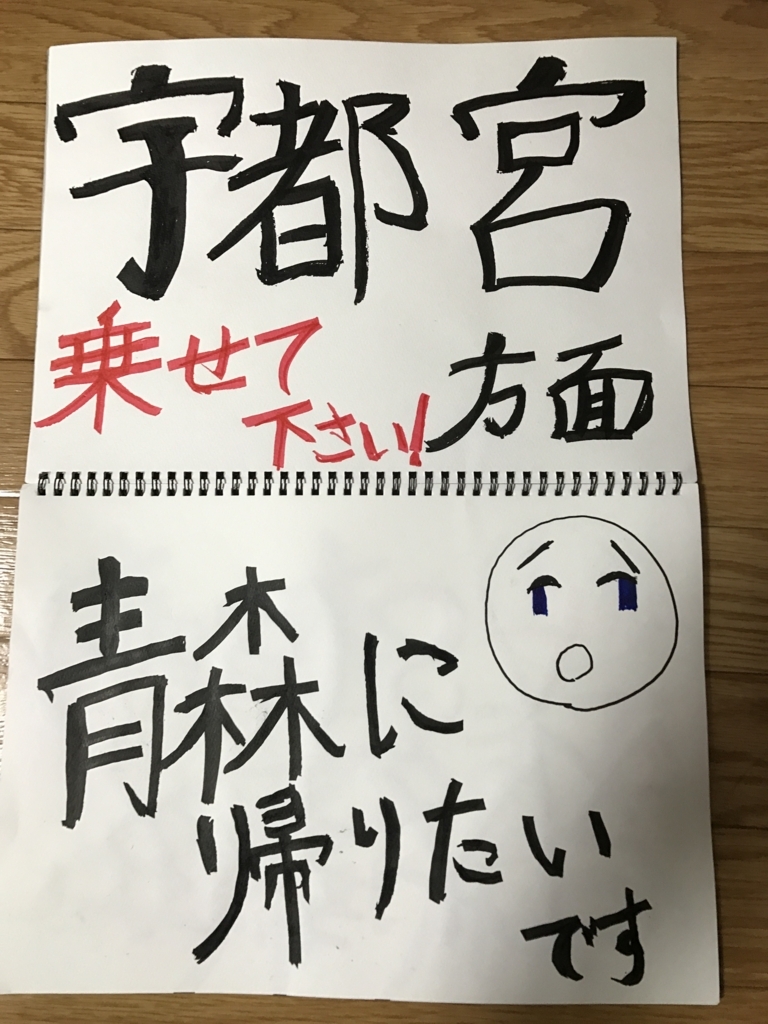 宇都宮
方面
乗せて
下さい!
青森に
帰りたい
です